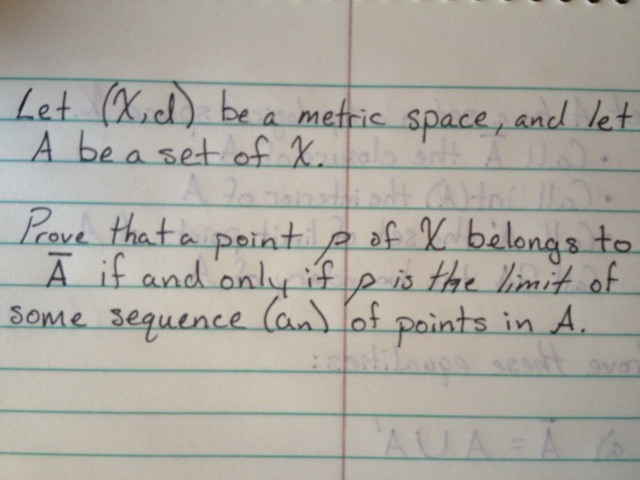 Let (X,d) be a metric space, and let
A be a set of X.
Prove that a point p of X belongs to
A̅ if and only if p is the limit of
some sequence (an) of points in A.